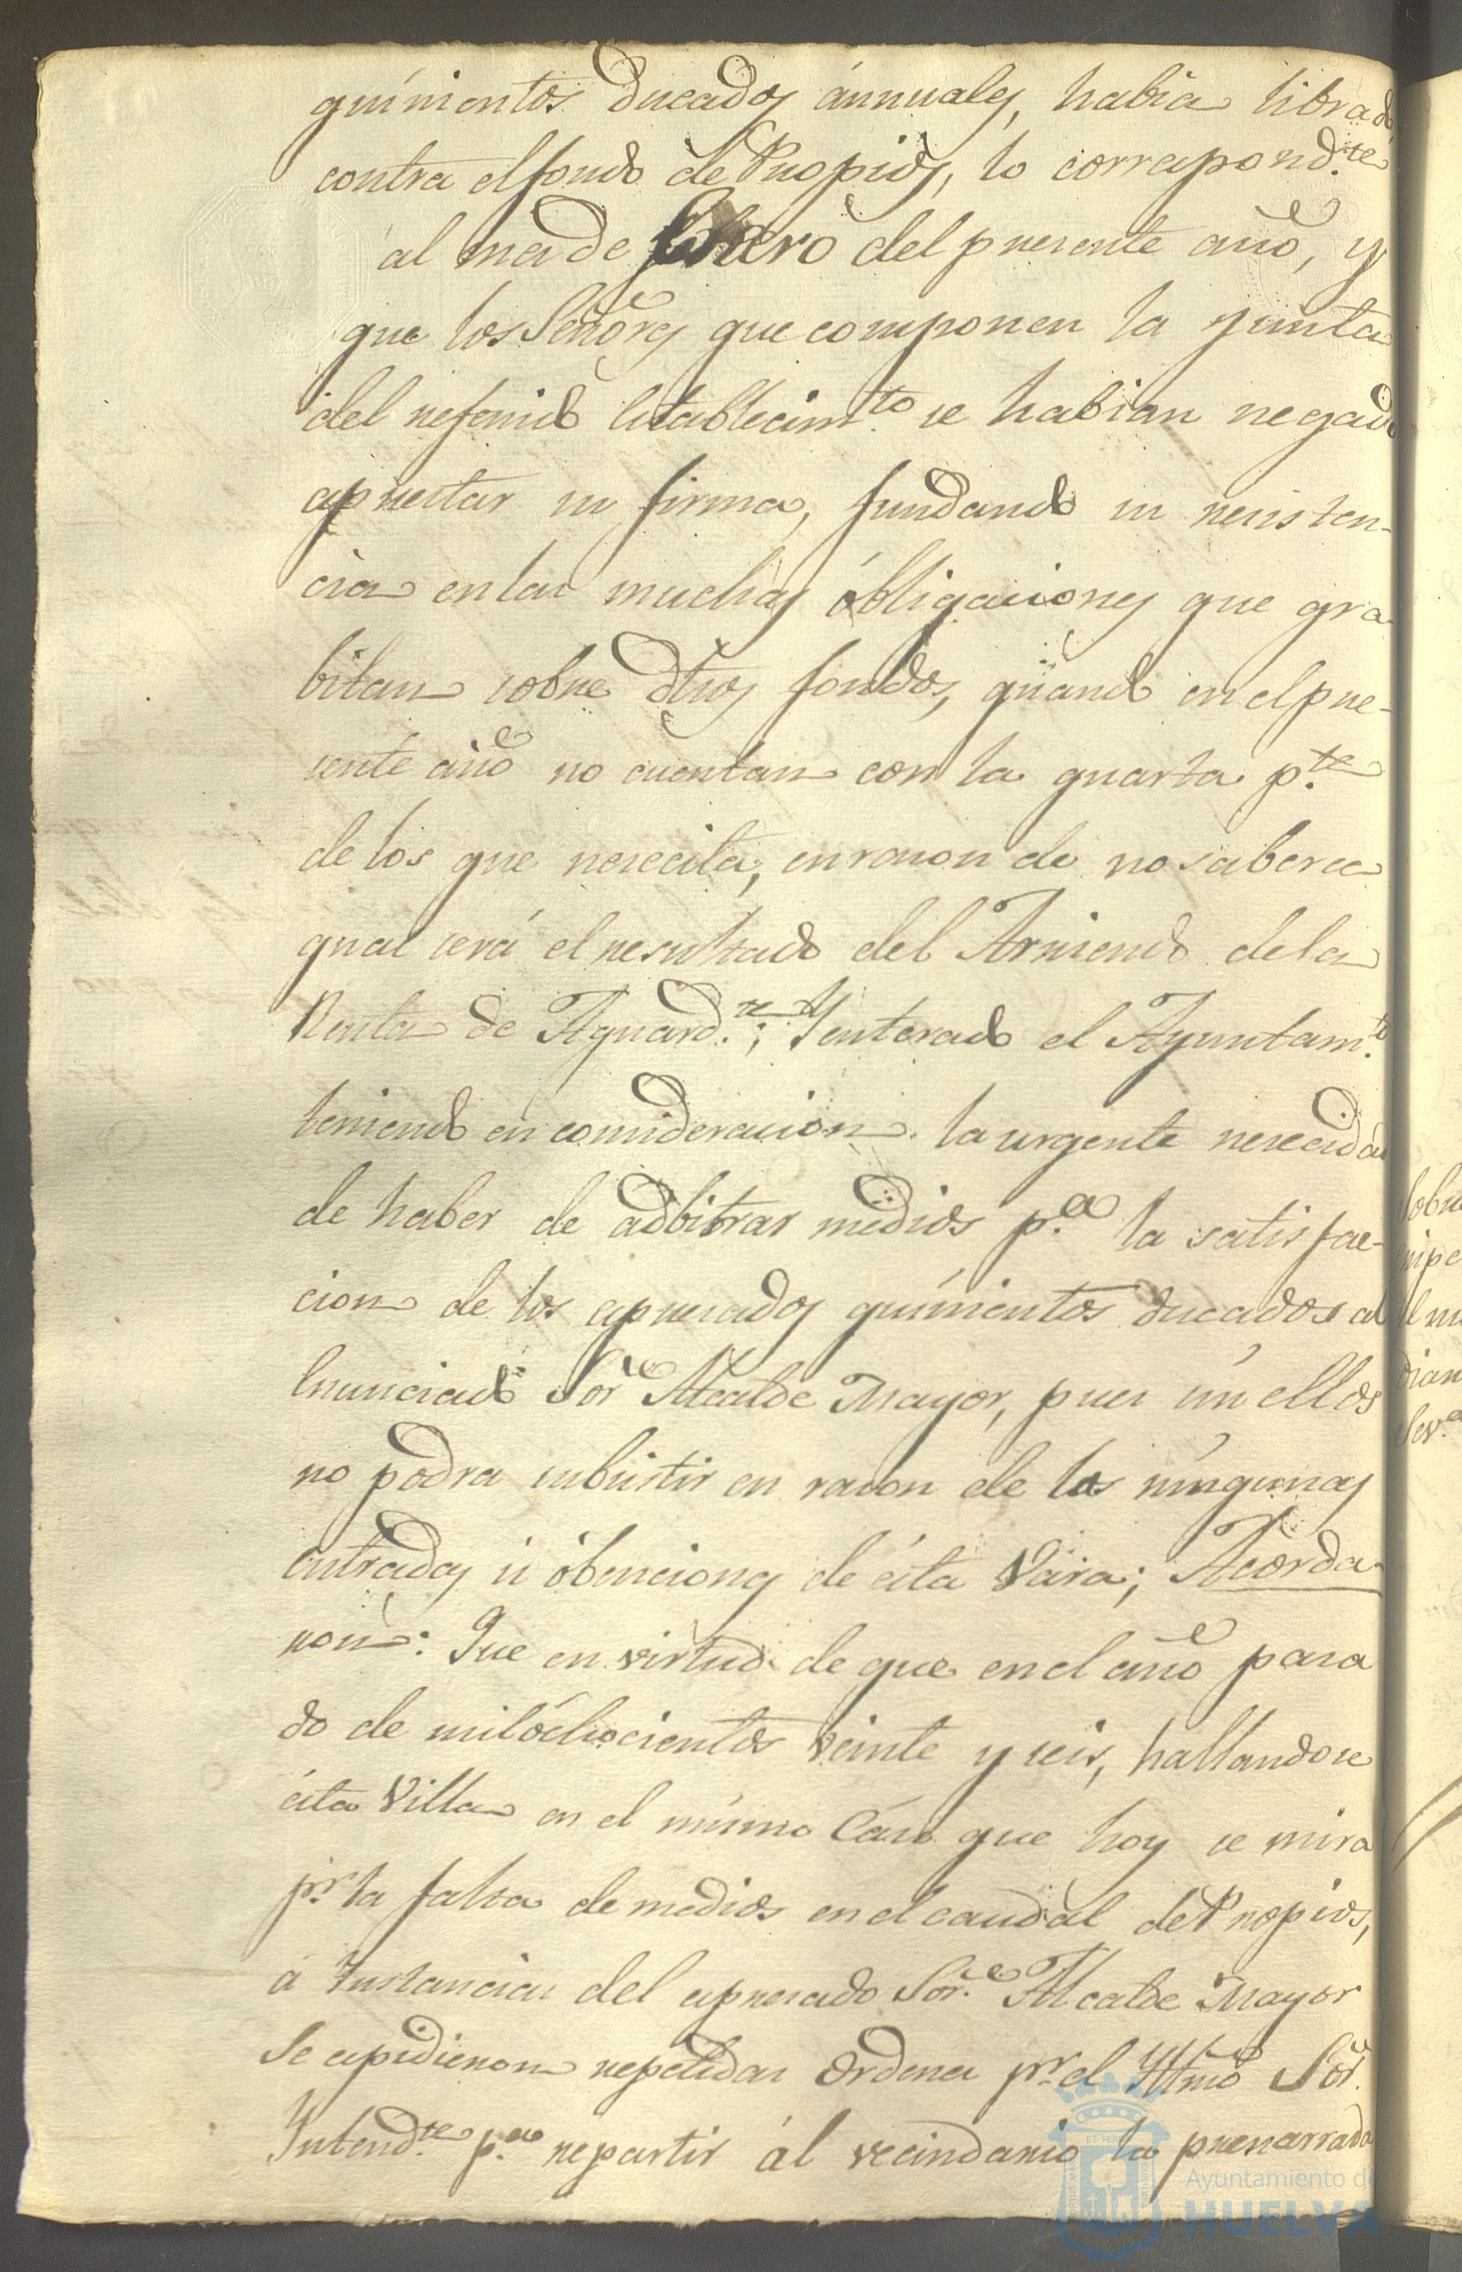 quinientos Ducados ánnuales, habia librado
contra el fondo de Propios, lo correspond.te
al mes de Febrero del presente año, y
que los Señores que componen la Junta
del referido Establecim.to se habian negado
a prestar su firma, fundando su resisten-
cia en las muchas óbligaciones que gra-
bitan sobre dhos fondos, quando en el pre-
sente año no cuentan con la quarta p.te
de los que nesecita, en rason de no saberse
qual será el resultado del Arriendo de la
Renta de Aguard.te; Y enterado el Ayuntam.to
teniendo en consideracion la urgente nesecidad
de haber de adbitrar medios p.a la satisfac-
cion de los apresados quinientos ducados al
Enunciado Sor Alcalde Mayor, pues sin ellos
no podra subsistir en rason de las ningunas
entradas ú óbenciones de ésta Vara; Acorda-
ron: Que en virtud de que en el año pasa
do de mil óchocientos veinte y seis, hallandose
ésta Villa en el mismo Caso que hoy se mira
pr la falta de medios en el caudal de Propios,
a Instancias del apresado Sor. Alcalde Mayor
Se espidieron repetidas Ordenes pr el Yltmo Sor.
Intend.te p.a repartir ál vecindario la prenarrada
Sobre
Sev.a
Ayuntamiento de
HUELVA